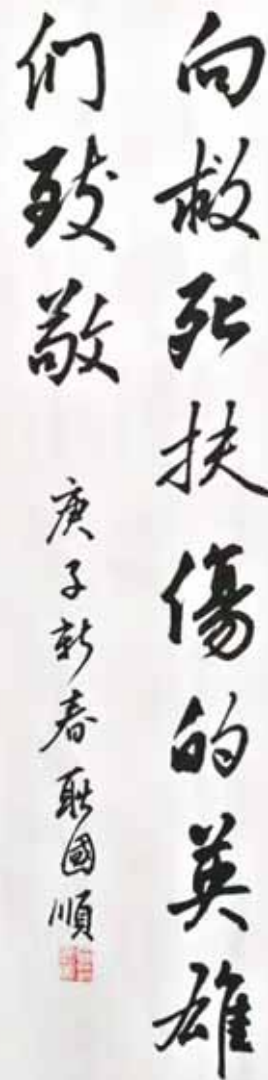 向救死扶傷的英雄
们致敬
庚子新春耿國順